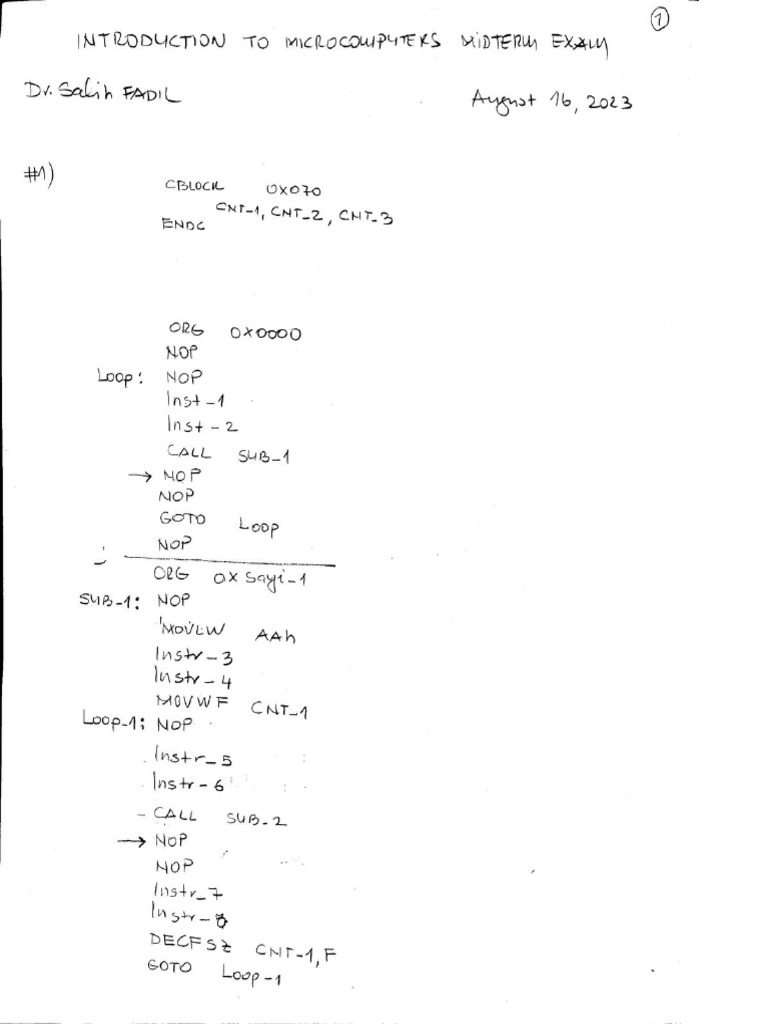 1
INTRODUCTION TO MICROCOMPUTERS MIDTERM EXAM
Dr. Salih FADIL
August 16, 2023
#1)
CBLOCK 0X070
CNT-1, CNT_2, CNT_3
ENDC
ORG 0X0000
NOP
Loop: NOP
Inst-1
Inst-2
CALL SUB-1
→ NOP
NOP
GOTO Loop
NOP
;
ORG 0X Sayi-1
SUB-1: NOP
MOVLW AAh
Instr-3
Instr-4
MOVWF CNT_1
Loop-1: NOP
Instr-5
Instr-6
- CALL SUB-2
→ NOP
NOP
Instr_7
Instr-8
DECFSZ CNT-1,F
GOTO Loop-1